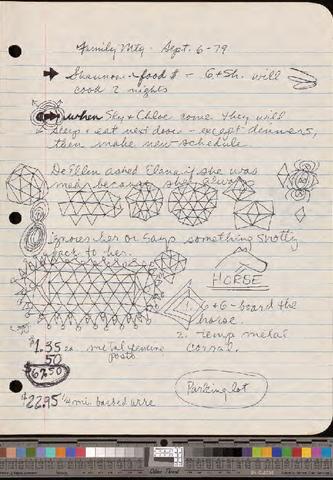 Family Mtg. Sept. 6-79
Shannon - food $ - G+Sh. will
cood 2 nights
when Sky + Chloe come they will
sleep + eat next door - except dinners,
then make new schedule.
DeEllen asked Elana if she was
mad because she always
ignores her or says something snotty
back to her.
HORSE
1. G+G - board the
horse.
2. temp metal
corral.
$1.35 ea. metal fencing
50 posts
$67.50
$22.95 1/4 mi barbed wire
Parking lot